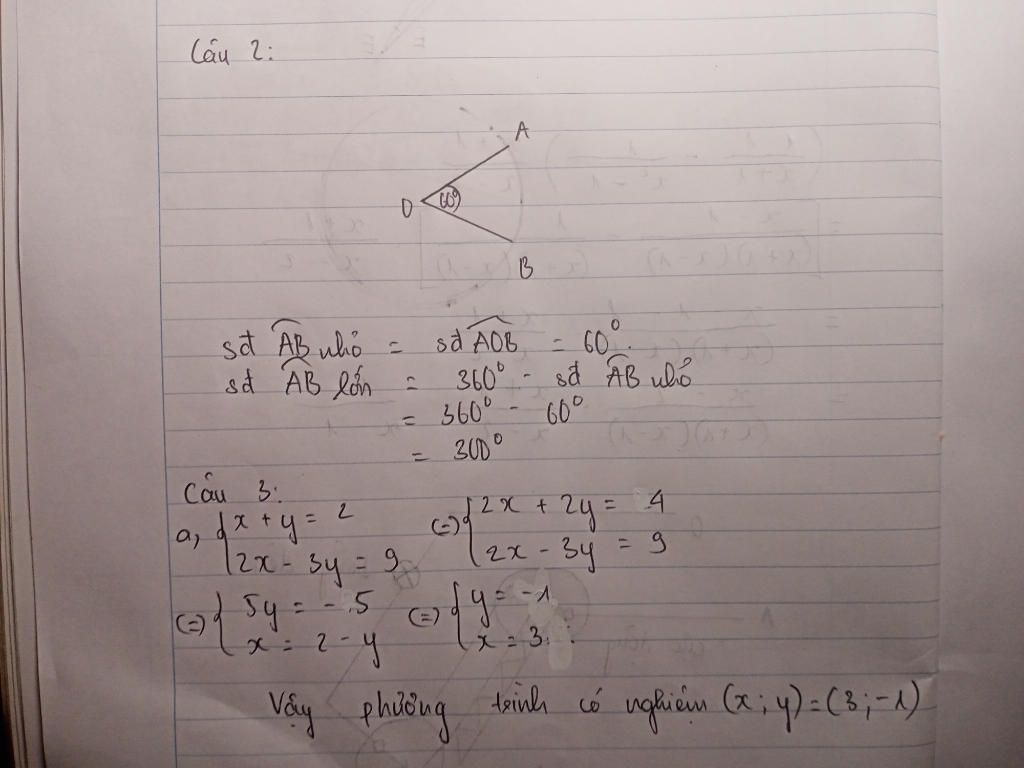 Câu 2:
A
O 60°
B
sđ AB nhỏ = sđ AOB = 60°.
sđ AB lớn = 360° - sđ AB nhỏ
= 360° - 60°
= 300°
Câu 3:
a, { x + y = 2 (=) { 2x + 2y = 4
2x - 3y = 9 2x - 3y = 9
(=) { 5y = -5 (=) { y = -1
x = 2 - y x = 3
Vậy phương trình có nghiệm (x; y) = (3; -1)